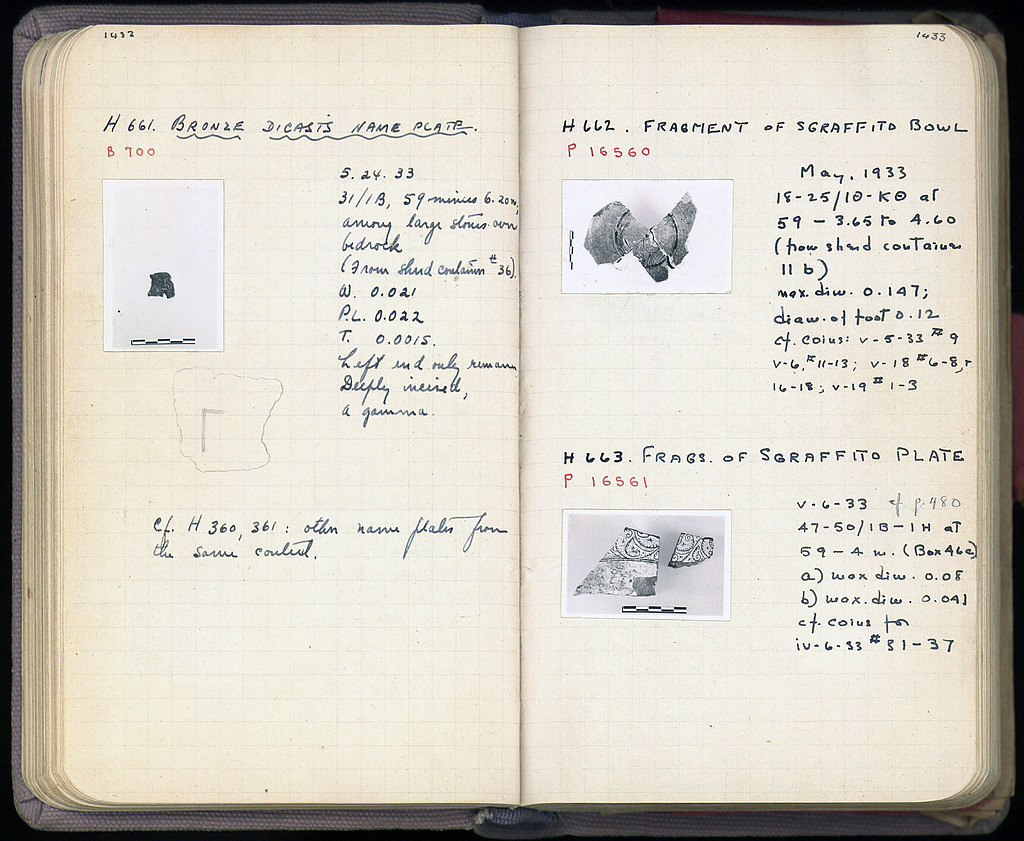 1432
H 661. BRONZE DICAST'S NAME PLATE.
B 700
5. 24. 33
31/IB, 59 minus 6.20 m,
among large stones over
bedrock
(From shed container #36).
W. 0.021
P.L. 0.022
T. 0.0015.
Left end only remains
Deeply incised,
a gamma.
Γ
Cf. H 360, 361: other name plates from
the same context.
1433
H 662. FRAGMENT OF SGRAFFITO BOWL
P 16560
May, 1933
18-25/ΙΘ-ΚΘ at
59 - 3.65 to 4.60
(from shed container
11 b)
max. dim. 0.147;
diam. of foot 0.12
cf. coins: V-5-33 #9
V-6, #11-13; V-18 #6-8,
16-18; V-19 #1-3
H 663. FRAGS. OF SGRAFFITO PLATE
P 16561
V-6-33 cf p. 480
47-50/IB-IH at
59-4 m. (Box 46c)
a) max dim. 0.08
b) max. dim. 0.041
cf. coins for
iv-6-33 #31-37